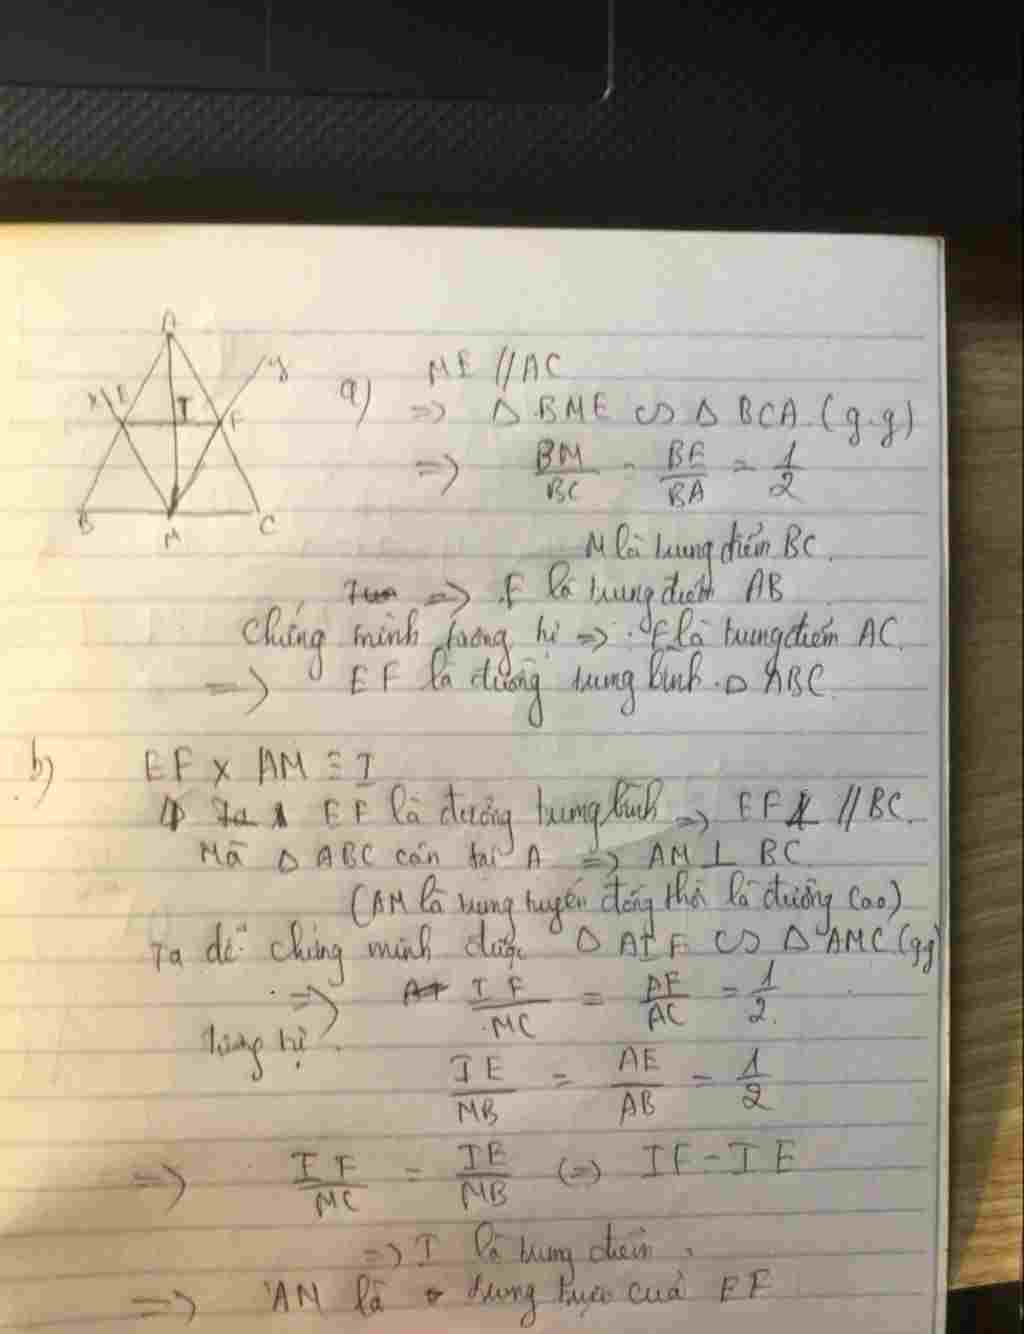 A
x E I F y
B M C
a) ME // AC
=> Δ BME ∽ Δ BCA (g.g)
=> BM/BC = BE/BA = 1/2
M là trung điểm BC.
=> E là trung điểm AB
Chứng minh tương tự => F là trung điểm AC.
=> EF là đường trung bình Δ ABC
b) EF x AM ≡ I
EF là đường trung bình => EF // BC.
Mà Δ ABC cân tại A => AM ⊥ BC
(AM là trung tuyến đồng thời là đường cao)
Ta dễ chứng minh được Δ AIF ∽ Δ AMC (gg)
=> IF/MC = AF/AC = 1/2.
Tương tự.
IE/MB = AE/AB = 1/2
=> IF/MC = IE/MB (=) IF = IE
=> I là trung điểm.
=> AM là trung trực của EF